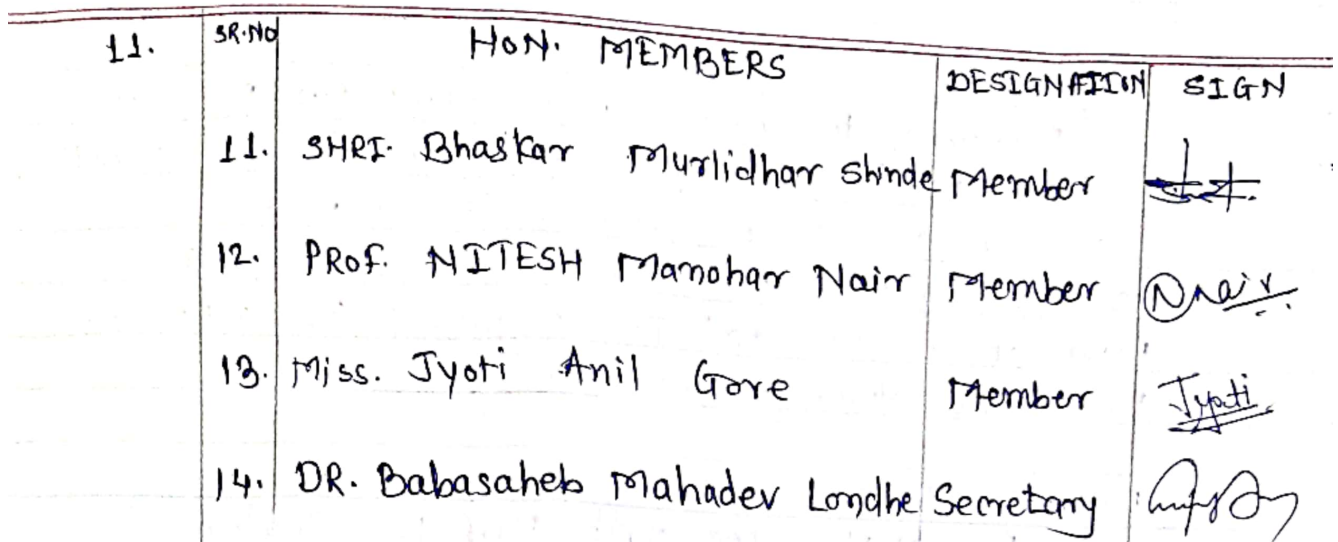 11. SR.NO HON. MEMBERS DESIGNATION SIGN
11. SHRI. Bhaskar Murlidhar Shinde Member
12. PROF. NITESH Manohar Nair Member Nnair
13. Miss. Jyoti Anil Gore Member Jyoti
14. DR. Babasaheb Mahadev Londhe Secretary